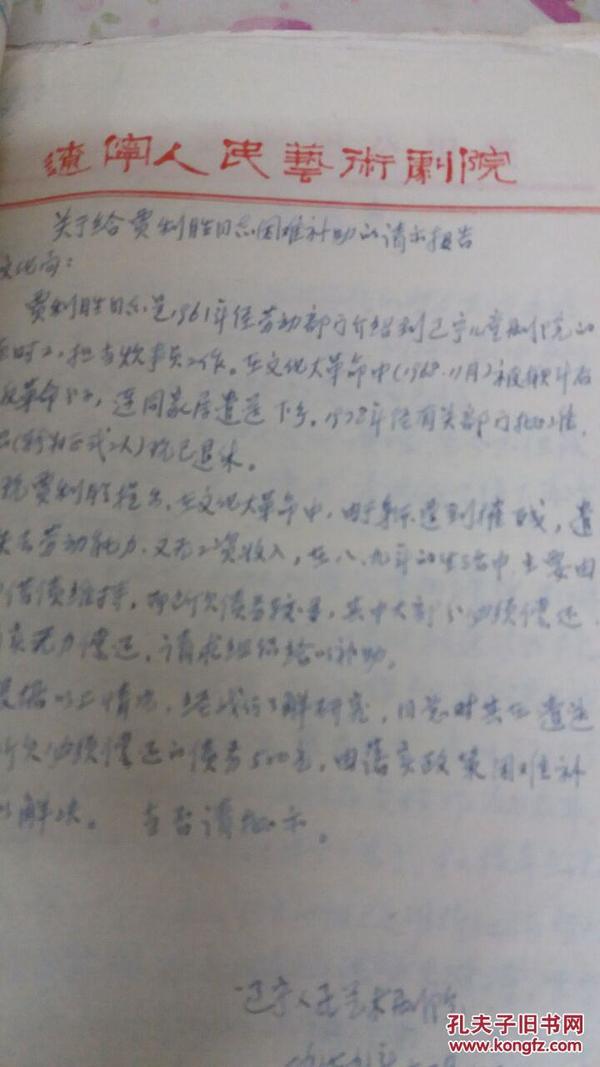 遼寧人民藝術劇院
关于给费利胜同志困难补助的请示报告
文化局:
费利胜同志是1961年经劳动部门介绍到辽宁儿童剧院的
临时工,担当炊事员工作。在文化大革命中(1968.11月)被
反革命分子,连同家属遣送下乡。1978年经有关部门批准,
(转为正式工人)现已退休。
现费利胜提出,在文化大革命中,由于身心遭到摧残,遣
失去劳动能力,又无工资收入,在八、九年的生活中主要由
借债维持,所欠债务较多,其中大部分必须偿还,
无力偿还,请求组织给以补助。
根据以上情况,经我们了解研究,同意对其在遣送
所欠必须偿还的债务500元,由落实政策困难补
解决。 当否请批示。
辽宁人民艺术剧院
孔夫子旧书网
KONGFZ.COM